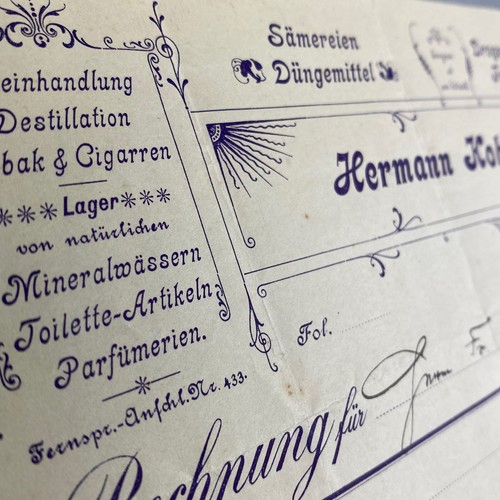 einhandlung
Destillation
bak & Cigarren
Lager
von natürlichen
Mineralwässern
Toilette-Artikeln,
Parfümerien.
Fernspr.-Anschl. Nr. 433.
Sämereien
Düngemittel
Hermann
Fol.
Rechnung für